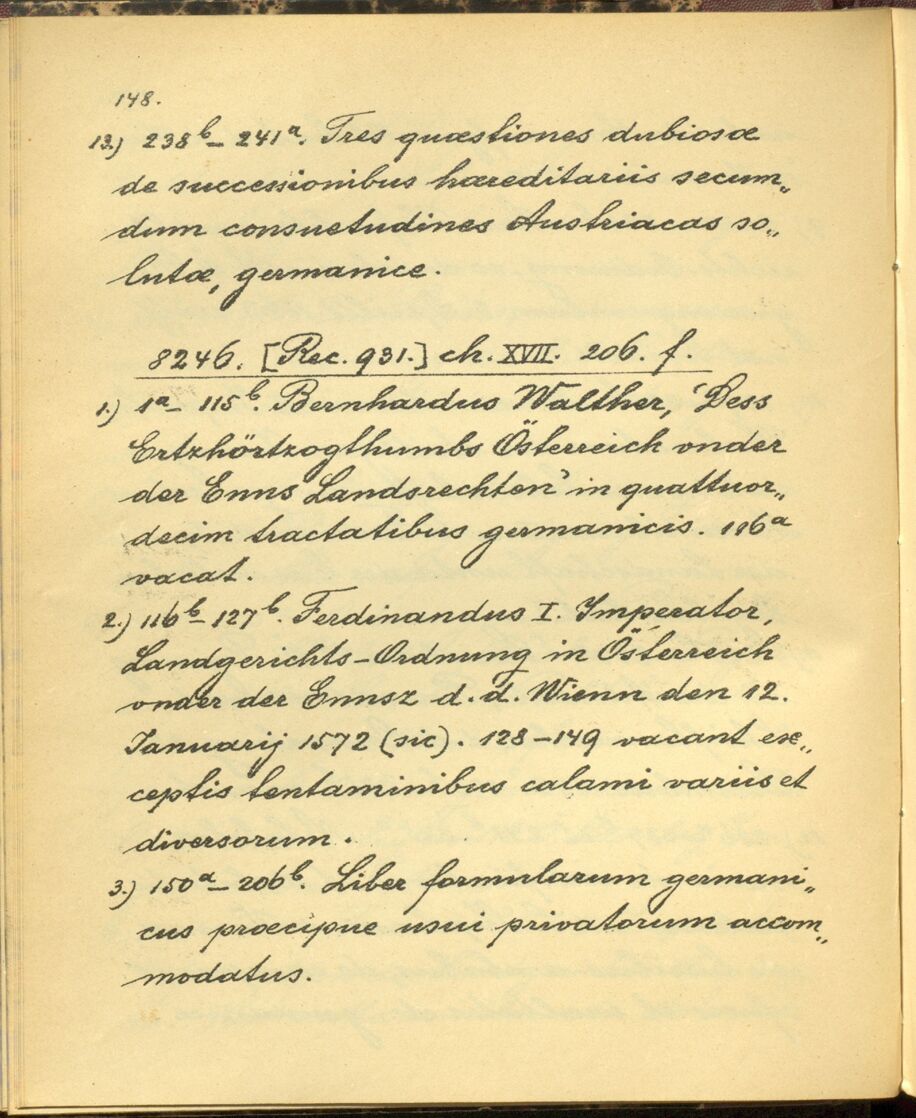 148.
13.) 238b – 241a. Tres quæstiones dubiosæ
de successionibus hæreditariis secum„
dum consuetudines Austriacas so„
lutæ, germanice.
8246. [Rec. 931.] ch. XVII. 206. f.
1.) 1a – 115b. Bernhardus Walther, 'Dess
Ertzhörtzogthumbs Österreich vnder
der Enns Landsrechten' in quattuor„
decim tractatibus germanicis. 116a
vacat.
2.) 116b – 127b. Ferdinandus I. Imperator,
Landgerichts-Ordnung in Österreich
vnder der Ennsz d. d. Wienn den 12.
Januarij 1572 (sic). 128–149 vacant ex„
ceptis tentaminibus calami variis et
diversorum.
3.) 150a – 206b. Liber formularum germani„
cus præcipue usui privatorum accom„
modatus.